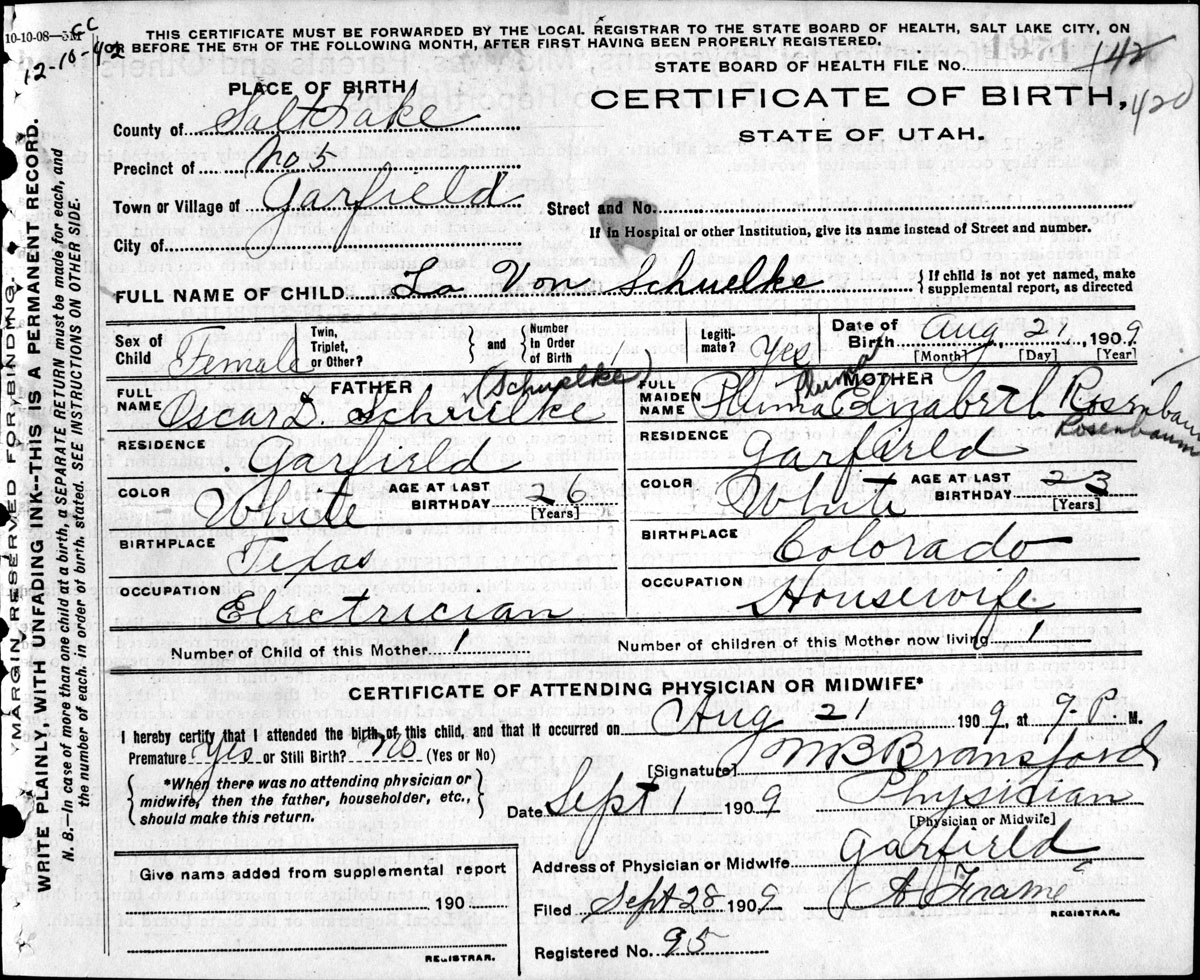 10-10-08—5M
CC
12-16-402
THIS CERTIFICATE MUST BE FORWARDED BY THE LOCAL REGISTRAR TO THE STATE BOARD OF HEALTH, SALT LAKE CITY, ON
OR BEFORE THE 5TH OF THE FOLLOWING MONTH, AFTER FIRST HAVING BEEN PROPERLY REGISTERED.
STATE BOARD OF HEALTH FILE NO. 142
420
PLACE OF BIRTH
CERTIFICATE OF BIRTH,
STATE OF UTAH.
County of Salt Lake
Precinct of No 5
Town or Village of Garfield
Street and No.
City of
If in Hospital or other Institution, give its name instead of Street and number.
FULL NAME OF CHILD La Von Schuelke { If child is not yet named, make supplemental report, as directed
Sex of Child Female Twin, Triplet, or Other? } and { Number In Order of Birth 1 Legitimate? Yes Date of Birth Aug 21, 1909
[Month] [Day] [Year]
FATHER
FULL NAME Oscar D. Schuelke (Schuelke)
MOTHER
FULL MAIDEN NAME Pluma Elizabeth Rosenbaum
Pluma
Rosenbaum
RESIDENCE Garfield
RESIDENCE Garfield
COLOR White AGE AT LAST BIRTHDAY 26 [Years]
COLOR White AGE AT LAST BIRTHDAY 23 [Years]
BIRTHPLACE Texas
BIRTHPLACE Colorado
OCCUPATION Electrician
OCCUPATION Housewife
Number of Child of this Mother 1 Number of children of this Mother now living 1
CERTIFICATE OF ATTENDING PHYSICIAN OR MIDWIFE*
I hereby certify that I attended the birth of this child, and that it occurred on Aug 21 1909, at 9. P. M.
Premature Yes or Still Birth? No (Yes or No)
[Signature] M B Bransford
{ *When there was no attending physician or midwife, then the father, householder, etc., should make this return. }
Date Sept 1 1909 Physician
[Physician or Midwife]
Give name added from supplemental report
190
REGISTRAR.
Address of Physician or Midwife Garfield
Filed Sept 28 1909 A Frame
REGISTRAR.
Registered No. 95
MARGIN RESERVED FOR BINDING.
WRITE PLAINLY, WITH UNFADING INK--THIS IS A PERMANENT RECORD.
N. B.—In case of more than one child at a birth, a SEPARATE RETURN must be made for each, and
the number of each. in order of birth. stated. SEE INSTRUCTIONS ON OTHER SIDE.